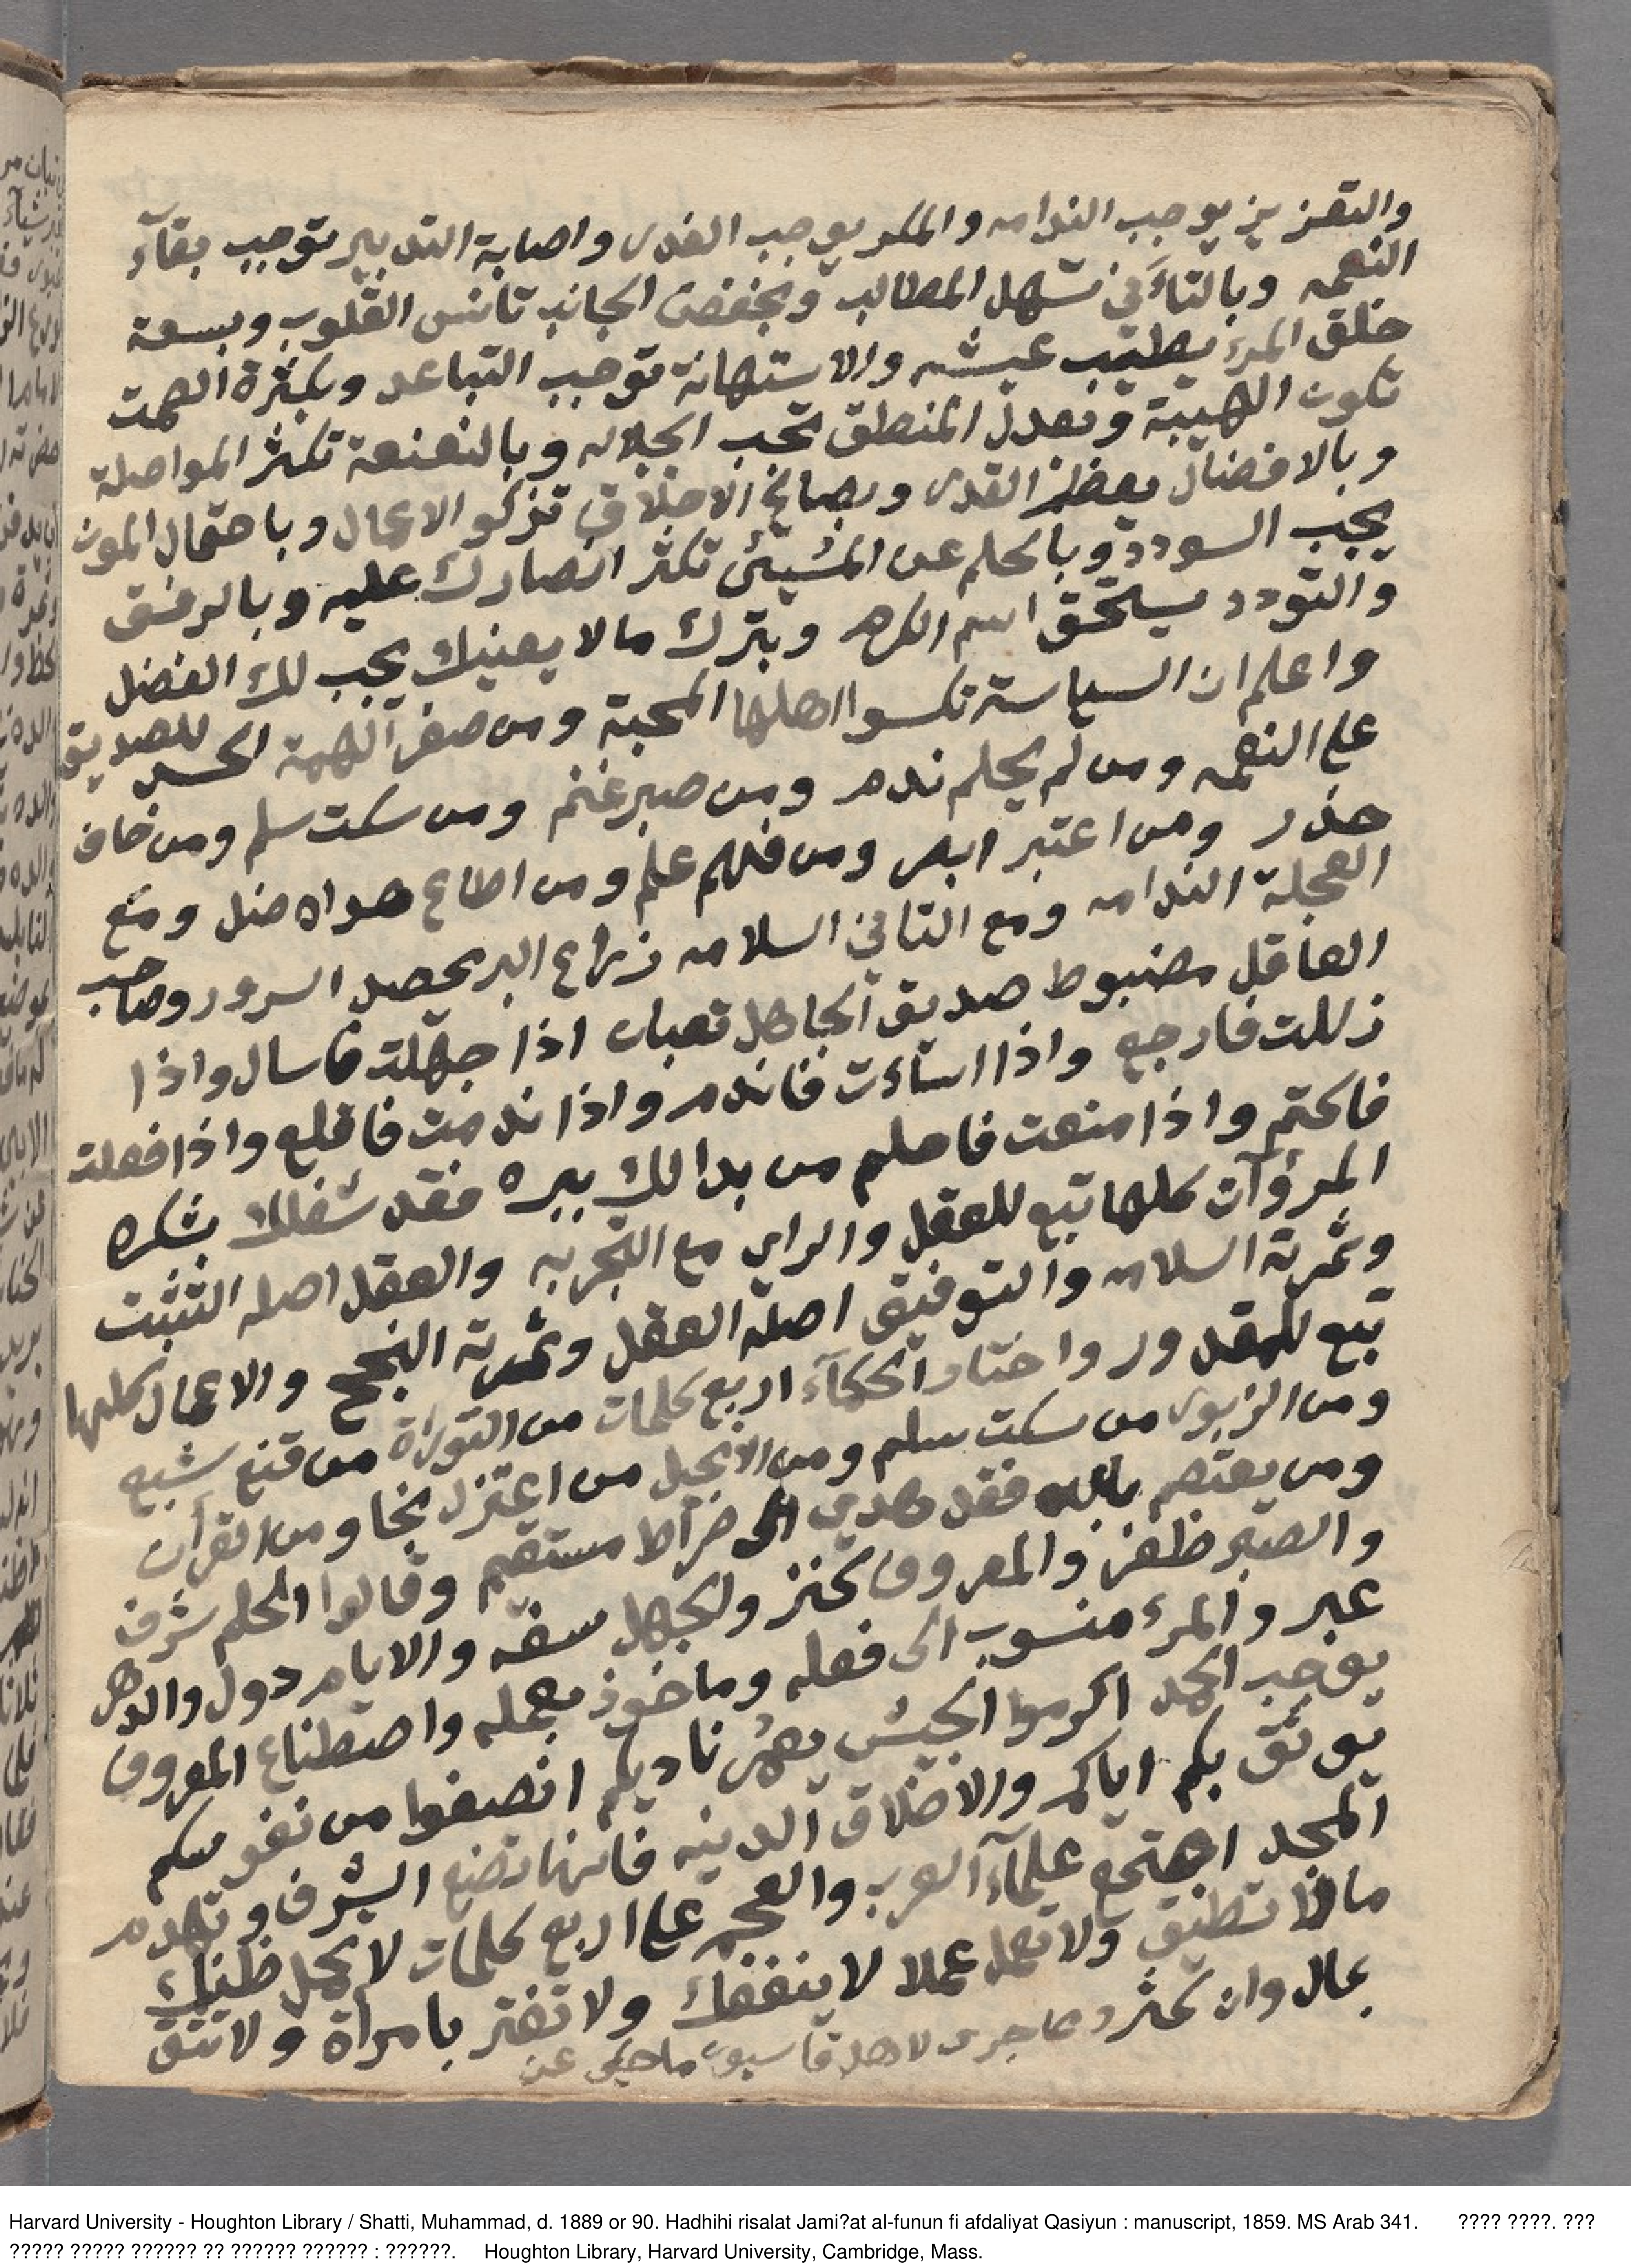 والتعزيز يوجب الندامه والمكر يوجب الغدر واصابة التدبير توجب بقآء
النعمه وبالتأني تسهل المطالب وبخفض الجانب تانس القلوب وبسعة
خلق المرء يطيب عيشه والاستهانة توجب التباعد وبكثرة الصمت
تكون الهيبة وبعدل المنطق تجب الجلاله وبالنصفة تكثر المواصلة
وبالافضال يعظم القدر وبصالح الاخلاق تزكو الاعمال وباحتمال المون
يجب السودد وبالحلم عن المسيئ تكثر انصارك عليه وبالرفق
والتودد يستحق اسم الكرم وبترك مالا يعنيك يجب لك الفضل
واعلم ان السياسة تكسوا اهلها المحبة ومن صغر الهمة الحسد للصديق
على النعمه ومن لم يحلم ندم ومن صبر غنم ومن سكت سلم ومن خاف
حذر ومن اعتبر ابصر ومن فهم علم ومن اطاع هواه ضل ومع
العجلة الندامه ومع التاني السلامه زارع البر يحصد السرور وصاحب
العاقل مضبوط صديق الجاهل تعبان اذا جهلت فاسال واذا
زللت فارجع واذا اساءت فاندم واذا ندمت فاقلع واذا فعلت
فاكتم واذا منعت فاحلم من بدا لك ببره فقد شغلك بشكره
المرؤآت كلها تبع للعقل والراي مع التجربه والعقل اصله التثبت
وثمرته السلامه والتوفيق اصله العقل وثمرته النجح والاعمال كلها
تبع للمقدور واختار الحكمآء اربع كلمات من التوراة من قنع شبع
ومن الزبور من سكت سلم ومن الانجيل من اعتزل نجا ومن القرآن
ومن يعتصم بالله فقد هدي الى صراط مستقيم وقالوا الحلم شرف
والصبر ظفر والمعروف كنز والجهل سفه والايام دول والدهر
عبر والمرء منسوب الى فعله وماخوذ بعمله واصطناع المعروف
يوجب الحمد اكرموا الجيش يعمر ناديكم انصفوا من نفوسكم
يوثق بكم اياكم والاخلاق الدنيه فانها تضع الشرف وتهدم
المجد اجتمع علمآء العرب والعجم على اربع كلمات لا تحمل ظنك
مالا تطيق ولا تعمل عملا لا ينفعك ولا تغتر بامراة ولا تثق
بمال وان كثر ومما جرى لاهل قاسيون ماحكي عن
Harvard University - Houghton Library / Shatti, Muhammad, d. 1889 or 90. Hadhihi risalat Jami?at al-funun fi afdaliyat Qasiyun : manuscript, 1859. MS Arab 341. ???? ????. ???
????? ????? ?????? ?? ?????? ?????? : ??????. Houghton Library, Harvard University, Cambridge, Mass.